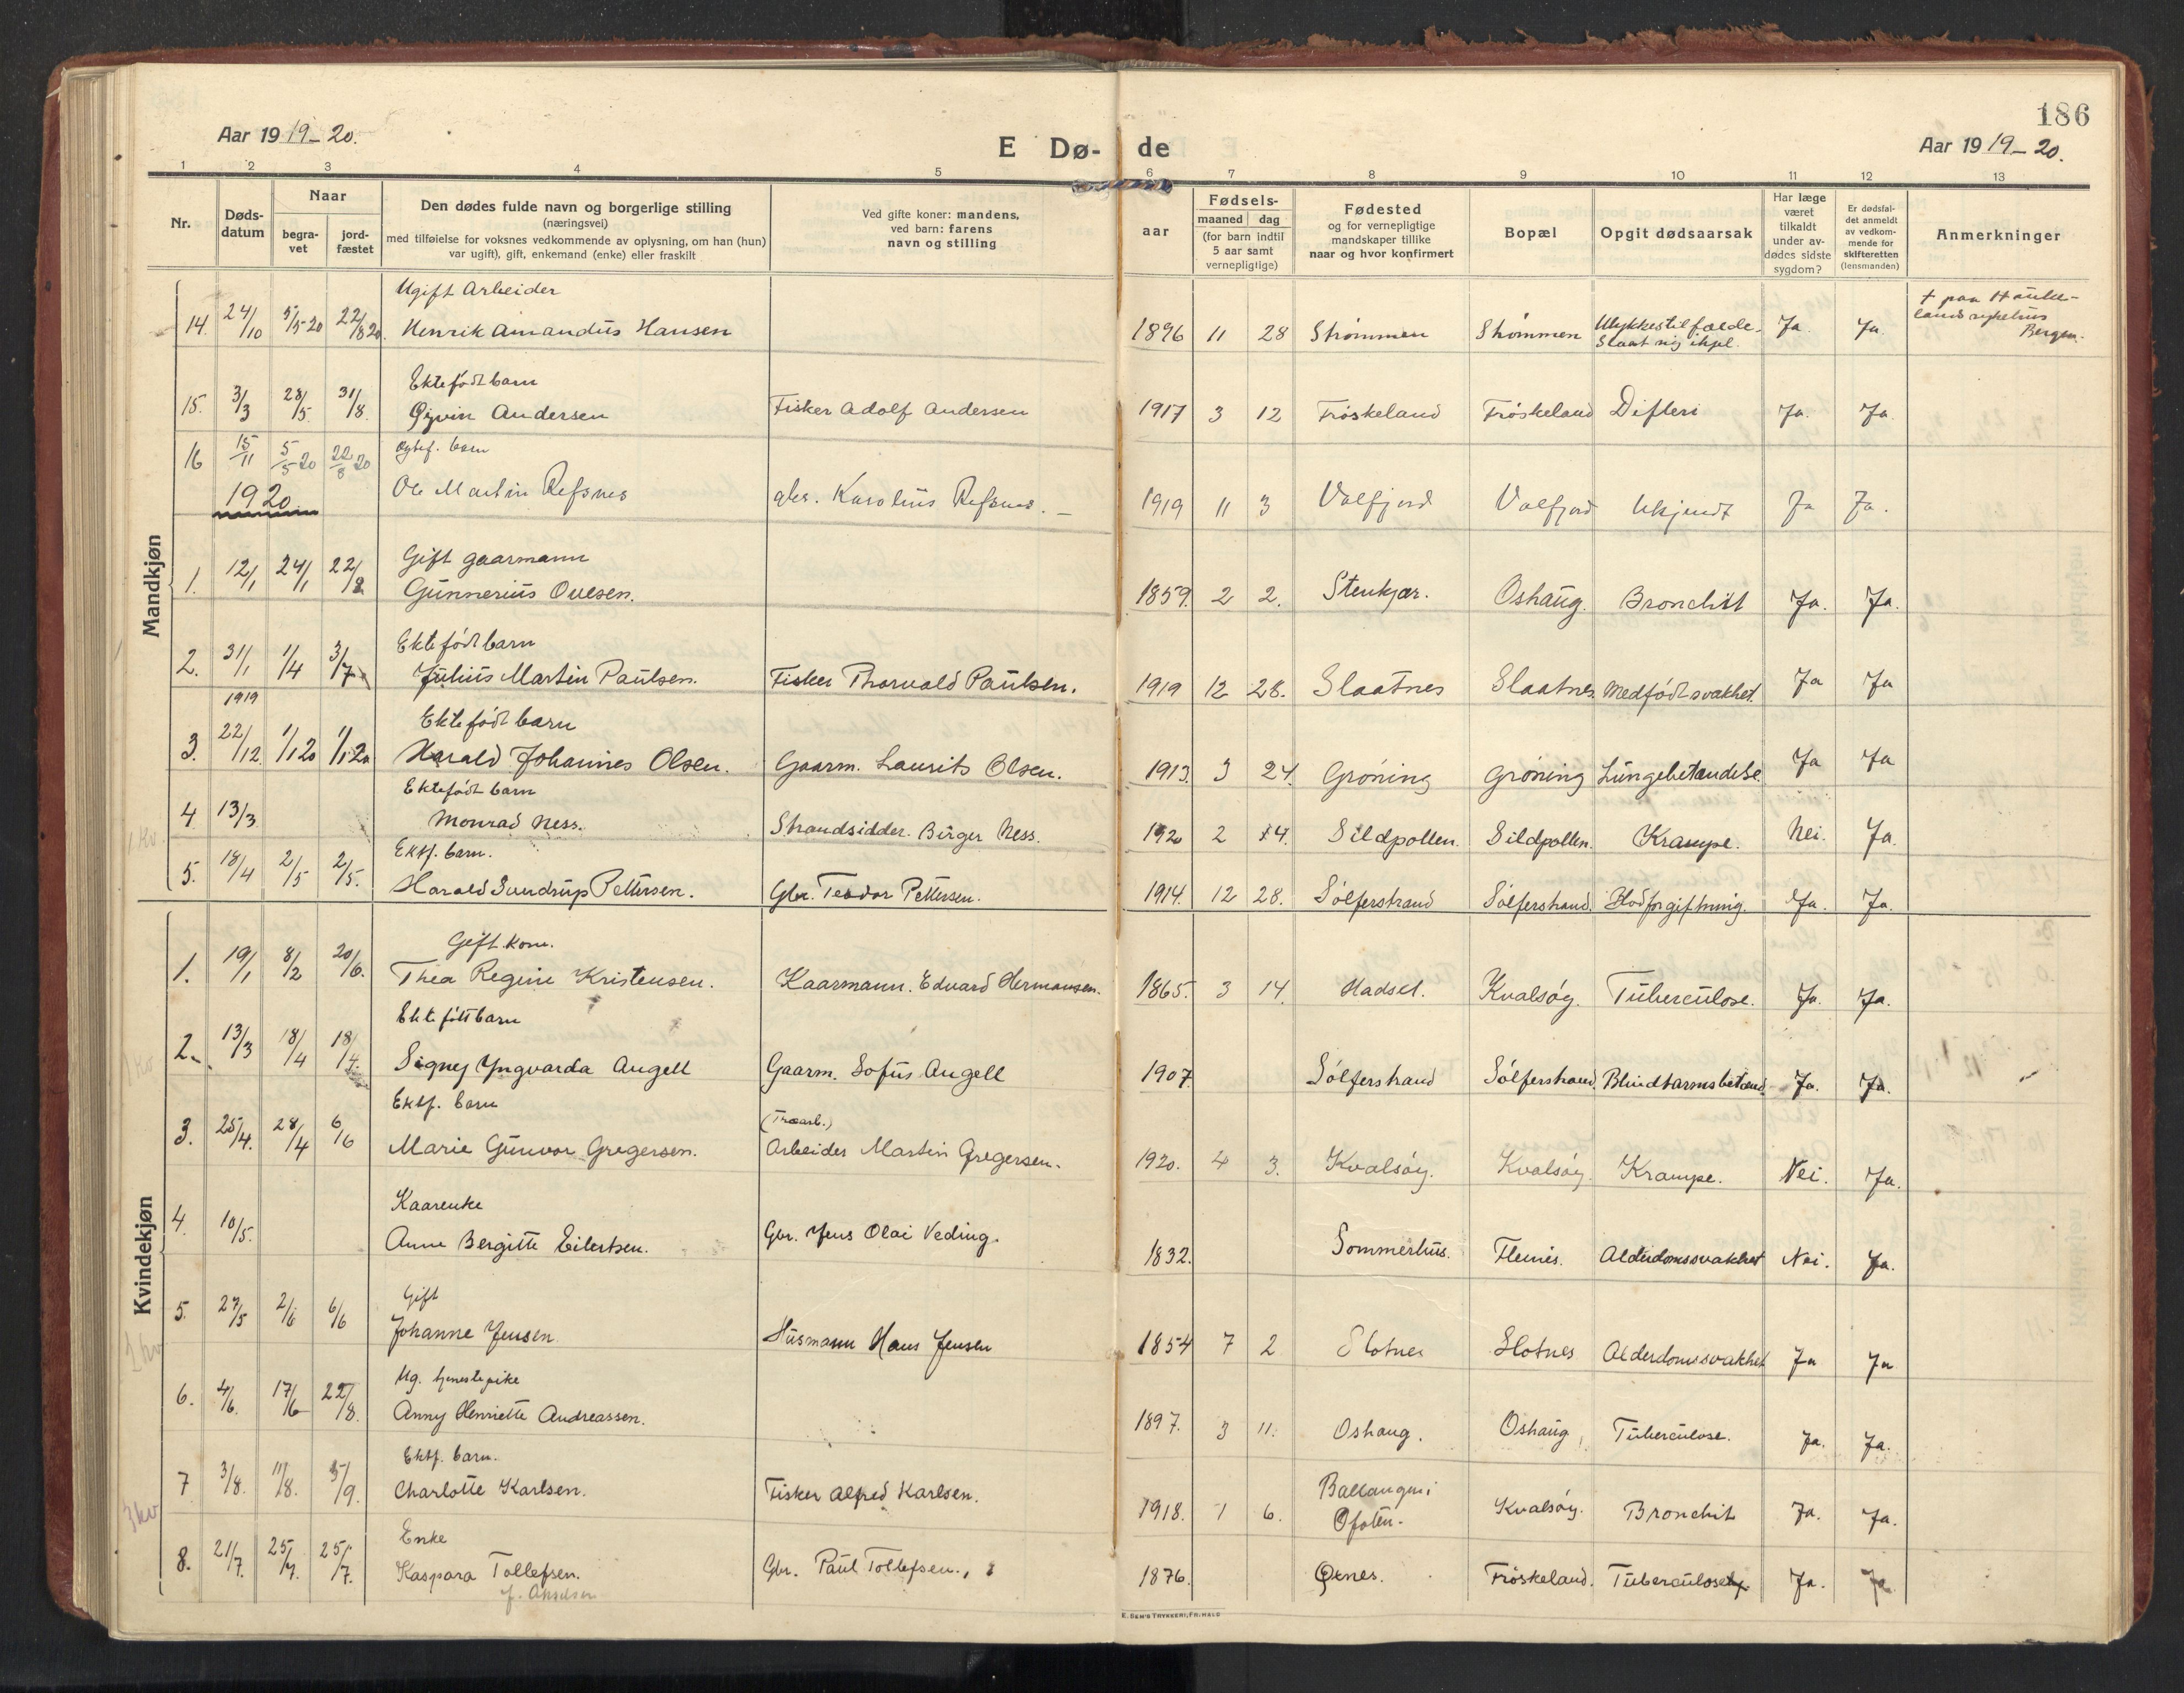 186
Aar 1919-20.
E Dø-de
Aar 1919-20.
1 2 3 4 5 6 7 8 9 10 11 12 13
Nr.
Døds-
datum
Naar
begra-
vet
jord-
fæstet
Den dødes fulde navn og borgerlige stilling
(næringsvei)
med tilføielse for voksnes vedkommende av oplysning, om han (hun)
var ugift), gift, enkemand (enke) eller fraskilt
Ved gifte koner: mandens,
ved barn: farens
navn og stilling
Fødsels-
aar
maaned dag
(for barn indtil
5 aar samt
vernepligtige)
Fødested
og for vernepligtige
mandskaper tillike
naar og hvor konfirmert
Bopæl
Opgit dødsaarsak
Har læge
været
tilkaldt
under av-
dødes sidste
sygdom?
Er dødsfal-
det anmeldt
av vedkom-
mende for
skifteretten
(lensmanden)
Anmerkninger
Mandkjøn
Ugift Arbeider
14. 24/10 5/5-20 22/8 20. Henrik Amandus Hansen 1896 11 28 Strømmen Strømmen Ulykkestilfælde. Slaat sig ihjel. Ja. Ja. † paa Hauke-
lands sykehus
Bergen.
Ektefødt barn
15. 3/3 28/5 31/8. Øyvin Andersen Fisker Adolf Andersen 1917 3 12 Frøskeland Frøskeland Difteri Ja. Ja.
16 15/11 5/5-20 22/8 20 barn
Ole Martin Refsnes gbr. Karolius Refsnes. 1919 11 3 Valfjord Valfjord Ukjendt Ja Ja.
1920
Gift gaarmann
1. 12/1 24/1 22/8 Gunnerius Ovesen. 1859. 2 2. Stenkjær. Oshaug. Bronchit Ja. Ja.
Ektefødt barn
2. 31/1 1/4 3/7 Julius Martin Paulsen. Fisker Thorvald Paulsen. 1919 12 28. Slaatnes Slaatnes. Medfødt svakhet. Ja Ja
1919
Ektefødt barn
3. 22/12. 1/1 20 1/1 20 Harald Johannes Olsen. Gaarm. Laurits Olsen. 1913. 3 24. Grøning Grøning Lungebetændelse Ja Ja
Ektefødt barn
4 13/3 Monrad Ness. Strandsidder. Birger Ness. 1920 2 14. Sildpollen. Sildpollen. Krampe. Nei. Ja.
Ektf. barn.
5. 18/4 2/5 2/5. Harald Sundrup Pettersen. Gbr. Teodor Pettersen. 1914. 12 28. Sølferstrand Sølferstrand. Blodforgiftning. Ja. Ja.
Kvindekjøn
Gift. kone.
1. 19/1 8/2 20/6. Thea Regine Kristensen. Kaarmann. Edvard Hermansen. 1865. 3 14. Hadsel. Kvalsøy. Tuberculose. Ja. Ja.
Ektefött barn
2. 13/3 18/4 18/4. Signy Yngvarda Angell Gaarm. Sofus Angell 1907. Sølferstrand Sølferstrand Blindtarmsbetænd. Ja. Ja.
Ektf. barn
(Træarb.)
3. 25/4. 28/4 6/6 Marie Gunvor Gregersen. Arbeider Martin Gregersen. 1920. 4 3. Kvalsøy. Kvalsøy. Krampe. Nei. Ja.
Kaarenke
4. 10/5. Anne Bergitte Eilertsen. Gbr. Jens Olai Veding. 1832. Sommerhus. Flenes. Alderdomssvakhet Nei. Ja.
Gift
5. 27/5 2/6 6/6 Johanne Jensen. Husmann Hans Jensen 1854 7 2 Slotnes Slotnes Alderdomssvakhet Ja Ja
Ug. tjenestepike
6. 4/6. 17/6 22/8. Anny Henriette Andreassen. 1897. 3 11. Oshaug. Oshaug, Tuberculose. Ja. Ja.
Ektf. barn.
7 3/8. 11/8. 5/9. Charlotte Karlsen. Fisker Alfred Karlsen. 1918. 1 6. Ballangen i
Ofoten. Kvalsøy. Bronchit Ja. Ja.
Enke
8. 21/7. 25/7. 25/7. Kaspara Tollefsen. Gbr. Paul Tollefsen. 1876. Øxnes. Frøskeland. Tuberculose. Ja. Ja
E. SEM'S TRYKKERI, FR.HALD